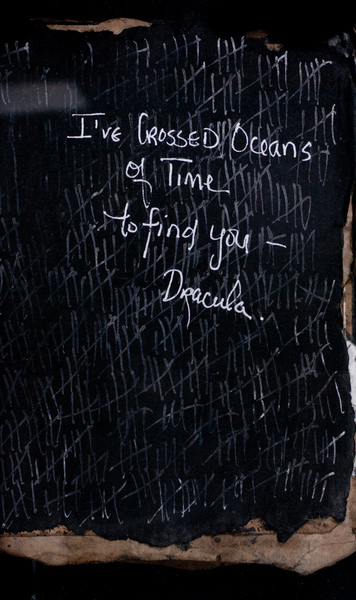 I've Crossed Oceans
of Time
to find you –
Dracula.